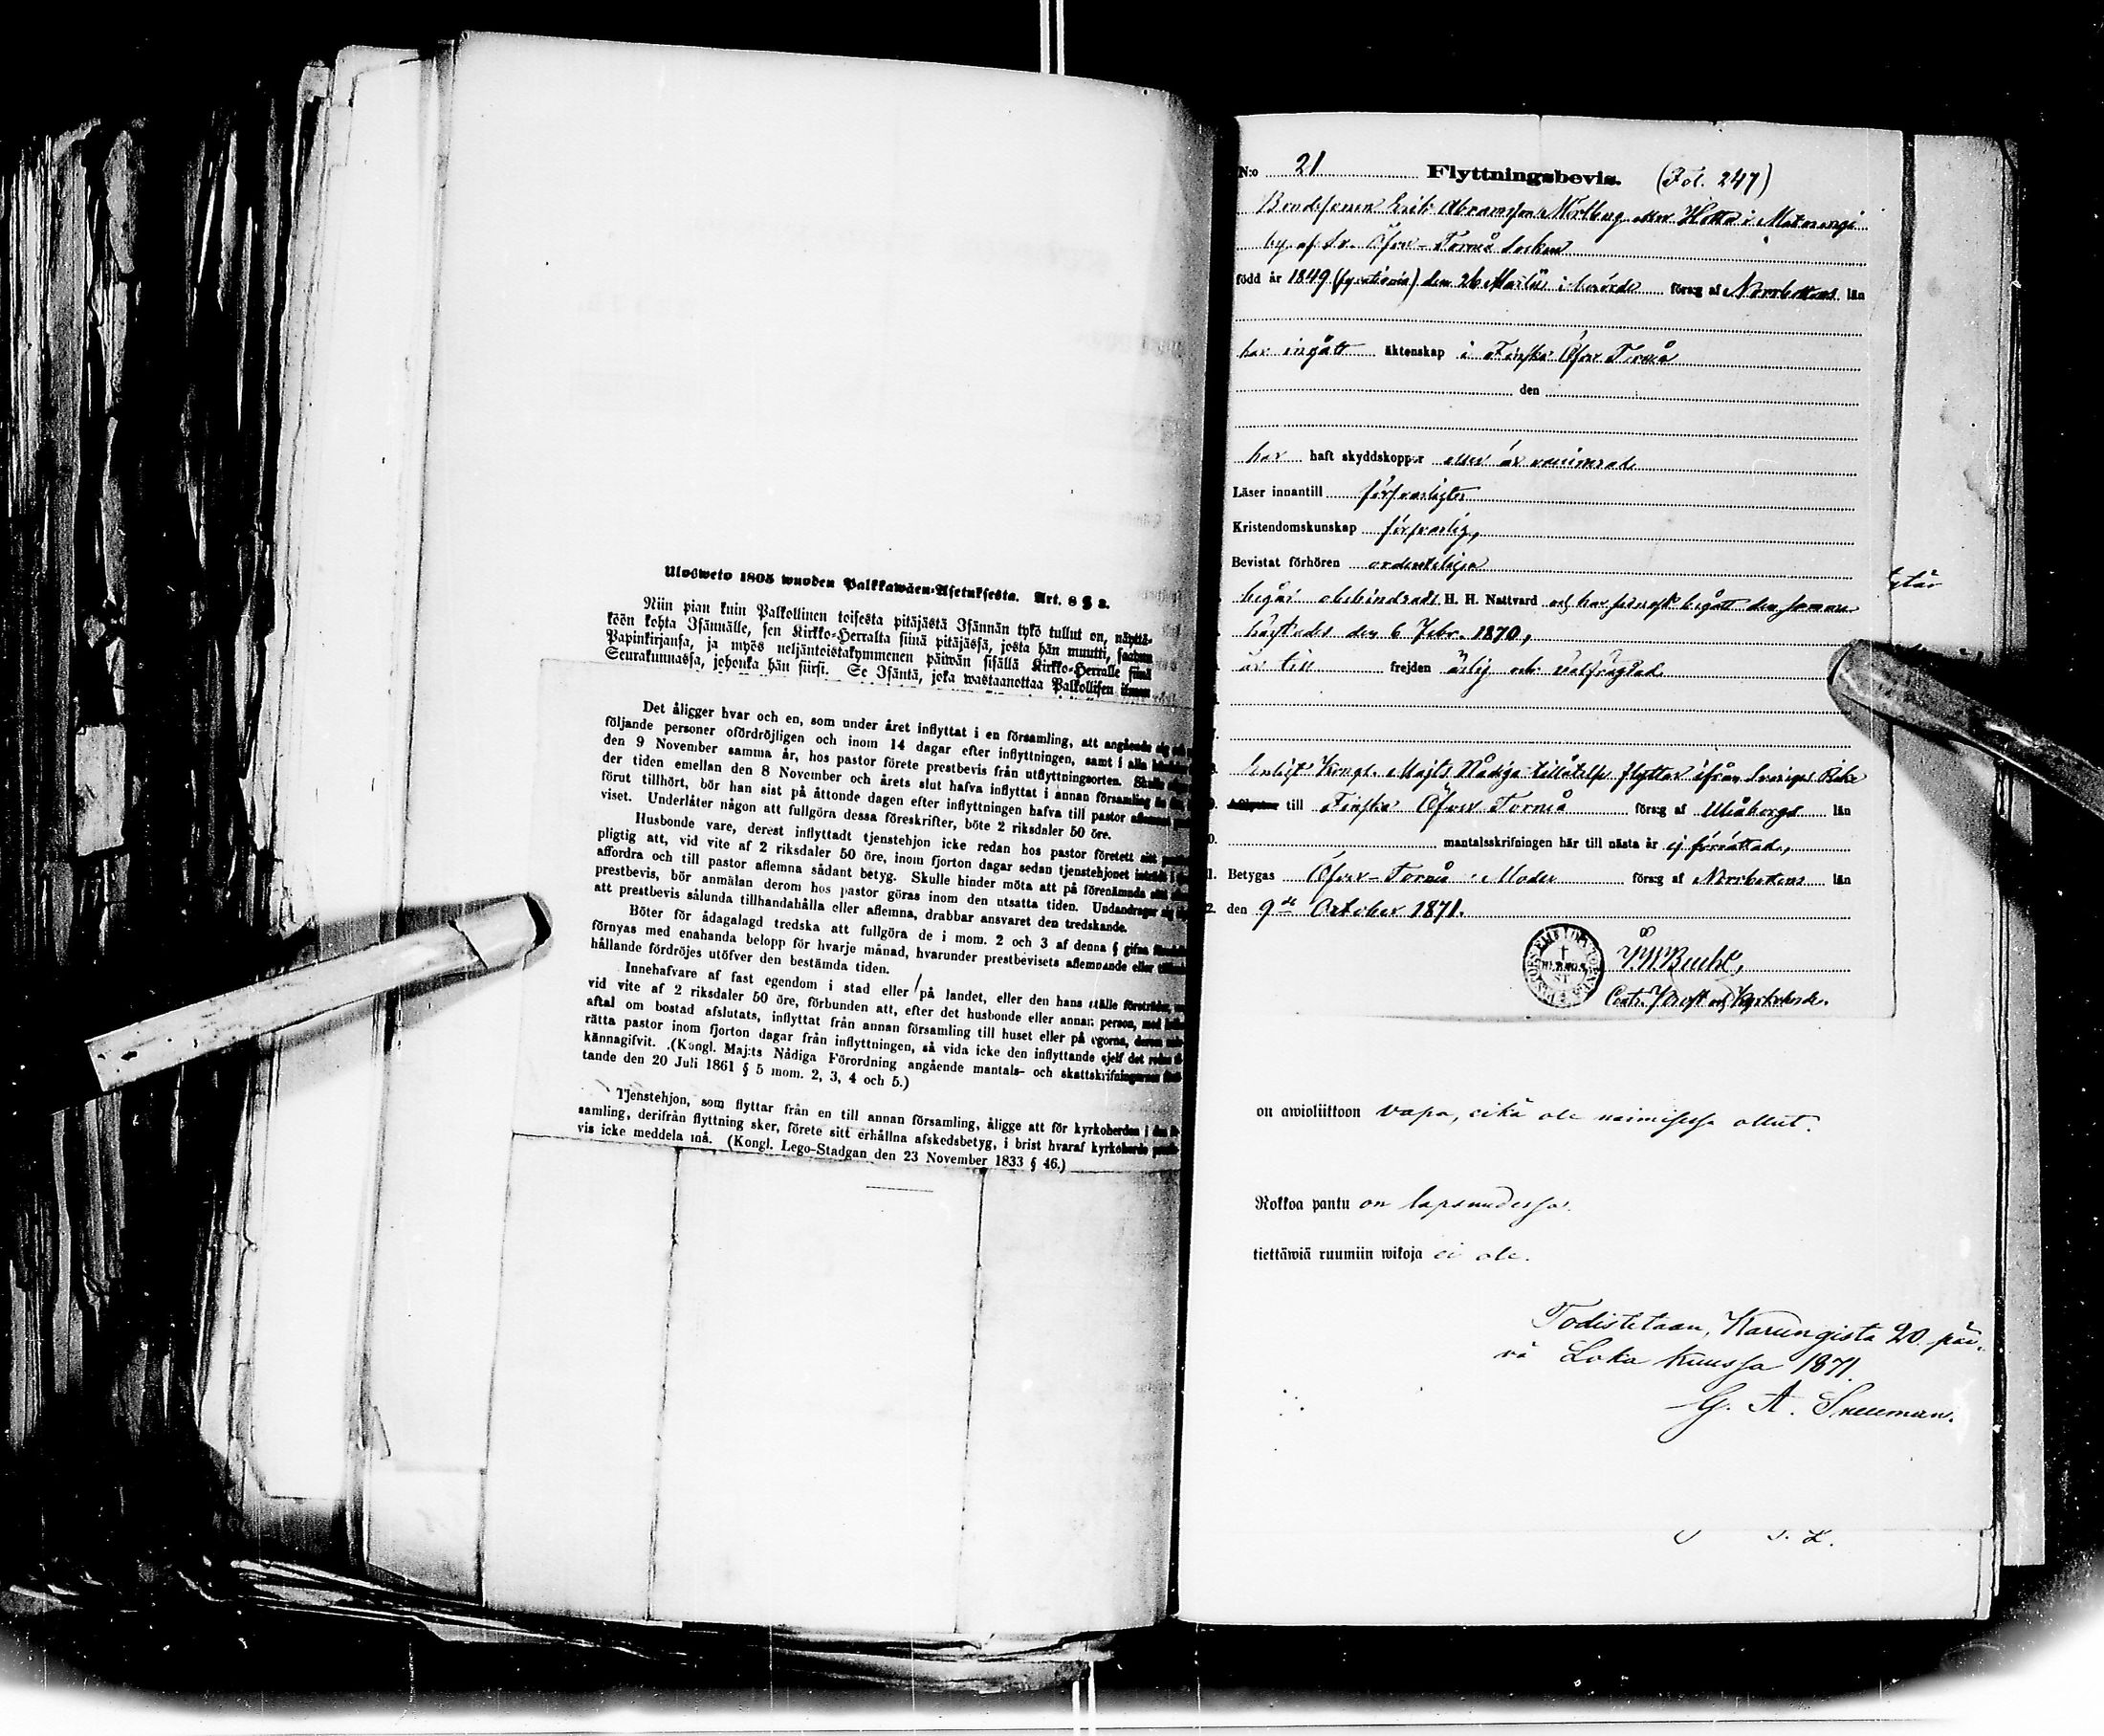 Ulosweto 1805 wuoden Palkkawäen-Asetuksesta. Art. 8 § 2.
Niin pian kuin Palkollinen toisesta pitäjästä Isännän tykö tullut on, näyttä-
köön kohta Isännälle, sen Kirkko-Herralta siinä pitäjässä, josta hän muutti, saatun
Papinkirjansa, ja myös neljäntoistakymmenen päiwän sisällä Kirkko-Herralle siinä
Seurakunnassa, johonka hän siirsi. Se Isäntä, joka wastaanottaa Palkollisen ilman
Det åligger hvar och en, som under året inflyttat i en församling, att angående sig och
följande personer ofördröjligen och inom 14 dagar efter inflyttningen, samt i alla
den 9 November samma år, hos pastor förete prestbevis från utflyttningsorten. Skulle
der tiden emellan den 8 November och årets slut hafva inflyttat i annan församling
förut tillhört, bör han sist på åttonde dagen efter inflyttningen hafva till pastor
viset. Underlåter någon att fullgöra dessa föreskrifter, böte 2 riksdaler 50 öre.
Husbonde vare, derest inflyttadt tjenstehjon icke redan hos pastor företett sitt
pligtig att, vid vite af 2 riksdaler 50 öre, inom fjorton dagar sedan tjenstehjonet
affordra och till pastor aflemna sådant betyg. Skulle hinder möta att på förenämnda sätt
prestbevis, bör anmälan derom hos pastor göras inom den utsatta tiden. Undandrager sig
att prestbevis sålunda tillhandahålla eller aflemna, drabbar ansvaret den tredskande.
Böter för ådagalagd tredska att fullgöra de i mom. 2 och 3 af denna § gifna
förnyas med enahanda belopp för hvarje månad, hvarunder prestbevisets aflemnande eller
hållande fördröjes utöfver den bestämda tiden.
Innehafvare af fast egendom i stad eller på landet, eller den hans ställe företräder,
vid vite af 2 riksdaler 50 öre, förbunden att, efter det husbonde eller annan person, med
aftal om bostad afslutats, inflyttat från annan församling till huset eller på egorna, derom
rätta pastor inom fjorton dagar från inflyttningen, så vida icke den inflyttande sjelf det redan
kännagifvit. (Kongl. Maj:ts Nådiga Förordning angående mantals- och skattskrifningarnas
tande den 20 Juli 1861 § 5 mom. 2, 3, 4 och 5.)
Tjenstehjon, som flyttar från en till annan församling, åligge att för kyrkoherden i den
samling, derifrån flyttning sker, förete sitt erhållna afskedsbetyg, i brist hvaraf kyrkoherde
vis icke meddela må. (Kongl. Lego-Stadgan den 23 November 1833 § 46.)
N:o 21 Flyttningsbevis. (Fol. 247)
Bondesonen Erik Abramsson eller Hotta i Matarengi
by af Sv. Öfver-Torneå Socken
född år 1849 (fyrationio) den 26 Martii i förs:g af Norrbottens län
har ingått äktenskap i Finska Öfver Torneå
den
har haft skyddskoppor eller är vaccinerad
Läser innantill försvarligen
Kristendomskunskap försvarlig,
Bevistat förhören ordentligen
begår obehindradt H. H. Nattvard och har senast begått den samma
den 6 Febr. 1870,
är till frejden ärlig och välfrägdad
Enligt Kongl. Maj:ts Nådiga tillåtelse flyttar ifrån Sveriges Rike
till Finska Öfver Torneå förs:g af Uleåborgs län
mantalsskrifningen här till nästa år ej förrättad,
Betygas Öfver-Torneå Moder förs:g af Norrbottens län
den 9de October 1871.
on awioliittoon vapa, eikä ole naimisessa ollut.
Rokkoa pantu on lapsuudessa.
tiettäwiä ruumiin wikoja ei ole.
Todistetaan, Karungista 20 päi-
vä Loka kuussa 1871.
G. A. Snellman.